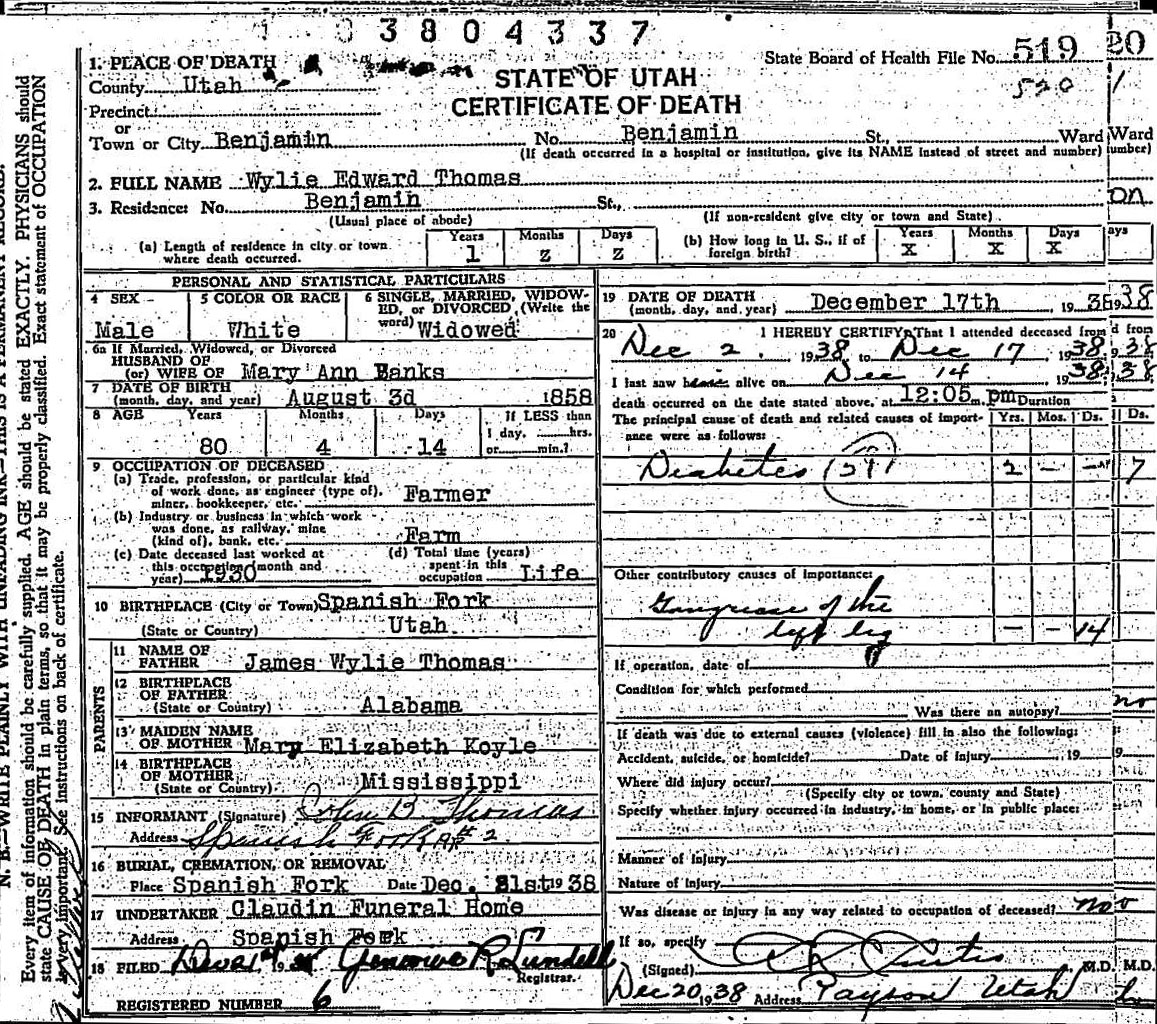 1 0 3 8 0 4 3 3 7
State Board of Health File No. 519 20
520 1
1. PLACE OF DEATH
STATE OF UTAH
County Utah
CERTIFICATE OF DEATH
Precinct
or
Town or City Benjamin No. Benjamin St., Ward Ward
(If death occurred in a hospital or institution, give its NAME instead of street and number) umber)
2. FULL NAME Wylie Edward Thomas
on
3. Residence: No. Benjamin St.,
(Usual place of abode) (If non-resident give city or town and State)
(a) Length of residence in city or town where death occurred. Years 1 Months z Days z
(b) How long in U. S., if of foreign birth? Years X Months X Days X ays
PERSONAL AND STATISTICAL PARTICULARS
4 SEX Male
5 COLOR OR RACE White
6 SINGLE, MARRIED, WIDOWED, or DIVORCED, (Write the word) Widowed
6a If Married, Widowed, or Divorced
HUSBAND OF
(or) WIFE OF Mary Ann Banks
7 DATE OF BIRTH
(month, day, and year) August 3d 1858
8 AGE Years Months Days If LESS than
80 4 14 1 day, hrs.
or min.?
9 OCCUPATION OF DECEASED
(a) Trade, profession, or particular kind
of work done, as engineer (type of), Farmer
miner, bookkeeper, etc.
(b) Industry or business in which work
was done, as railway, mine
(kind of), bank, etc. Farm
(c) Date deceased last worked at (d) Total time (years)
this occupation (month and spent in this
year) 1930 occupation Life
10 BIRTHPLACE (City or Town) Spanish Fork
(State or Country) Utah
PARENTS
11 NAME OF
FATHER James Wylie Thomas
12 BIRTHPLACE
OF FATHER
(State or Country) Alabama
13 MAIDEN NAME
OF MOTHER Mary Elizabeth Koyle
14 BIRTHPLACE
OF MOTHER
(State or Country) Mississippi
15 INFORMANT (Signature) John B. Thomas
Address Spanish Fork R#2.
16 BURIAL, CREMATION, OR REMOVAL
Place Spanish Fork Date Dec. 21st 1938
17 UNDERTAKER Claudin Funeral Home
Address Spanish Fork
18 FILED 19 Genevieve R Lundell
Registrar.
REGISTERED NUMBER 6
19 DATE OF DEATH
(month, day, and year) December 17th, 1938 38
20 I HEREBY CERTIFY, That I attended deceased from d from
Dec 2, 1938, to Dec 17, 1938, 938
I last saw h alive on Dec 14, 1938; 38
death occurred on the date stated above, at 12:05 m. pm Duration
The principal cause of death and related causes of importance were as follows: Yrs. Mos. Ds. Ds.
Diabetes (59) 2 - - 7
Other contributory causes of importance:
Gangrene of the
left leg - - 14
If operation, date of
Condition for which performed
Was there an autopsy? no
If death was due to external causes (violence) fill in also the following:
Accident, suicide, or homicide? Date of injury, 19 9
Where did injury occur?
(Specify city or town, county and State)
Specify whether injury occurred in industry, in home, or in public place:
Manner of Injury
Nature of Injury
Was disease or injury in any way related to occupation of deceased? no o
If so, specify
(Signed) Curtis M.D. M.D.
Dec 20, 1938 Address Payson Utah
N. B.—WRITE PLAINLY WITH UNFADING INK—THIS IS A PERMANENT RECORD.
Every item of information should be carefully supplied. AGE should be stated EXACTLY. PHYSICIANS should
state CAUSE OF DEATH in plain terms, so that it may be properly classified. Exact statement of OCCUPATION
is very important. See instructions on back of certificate.